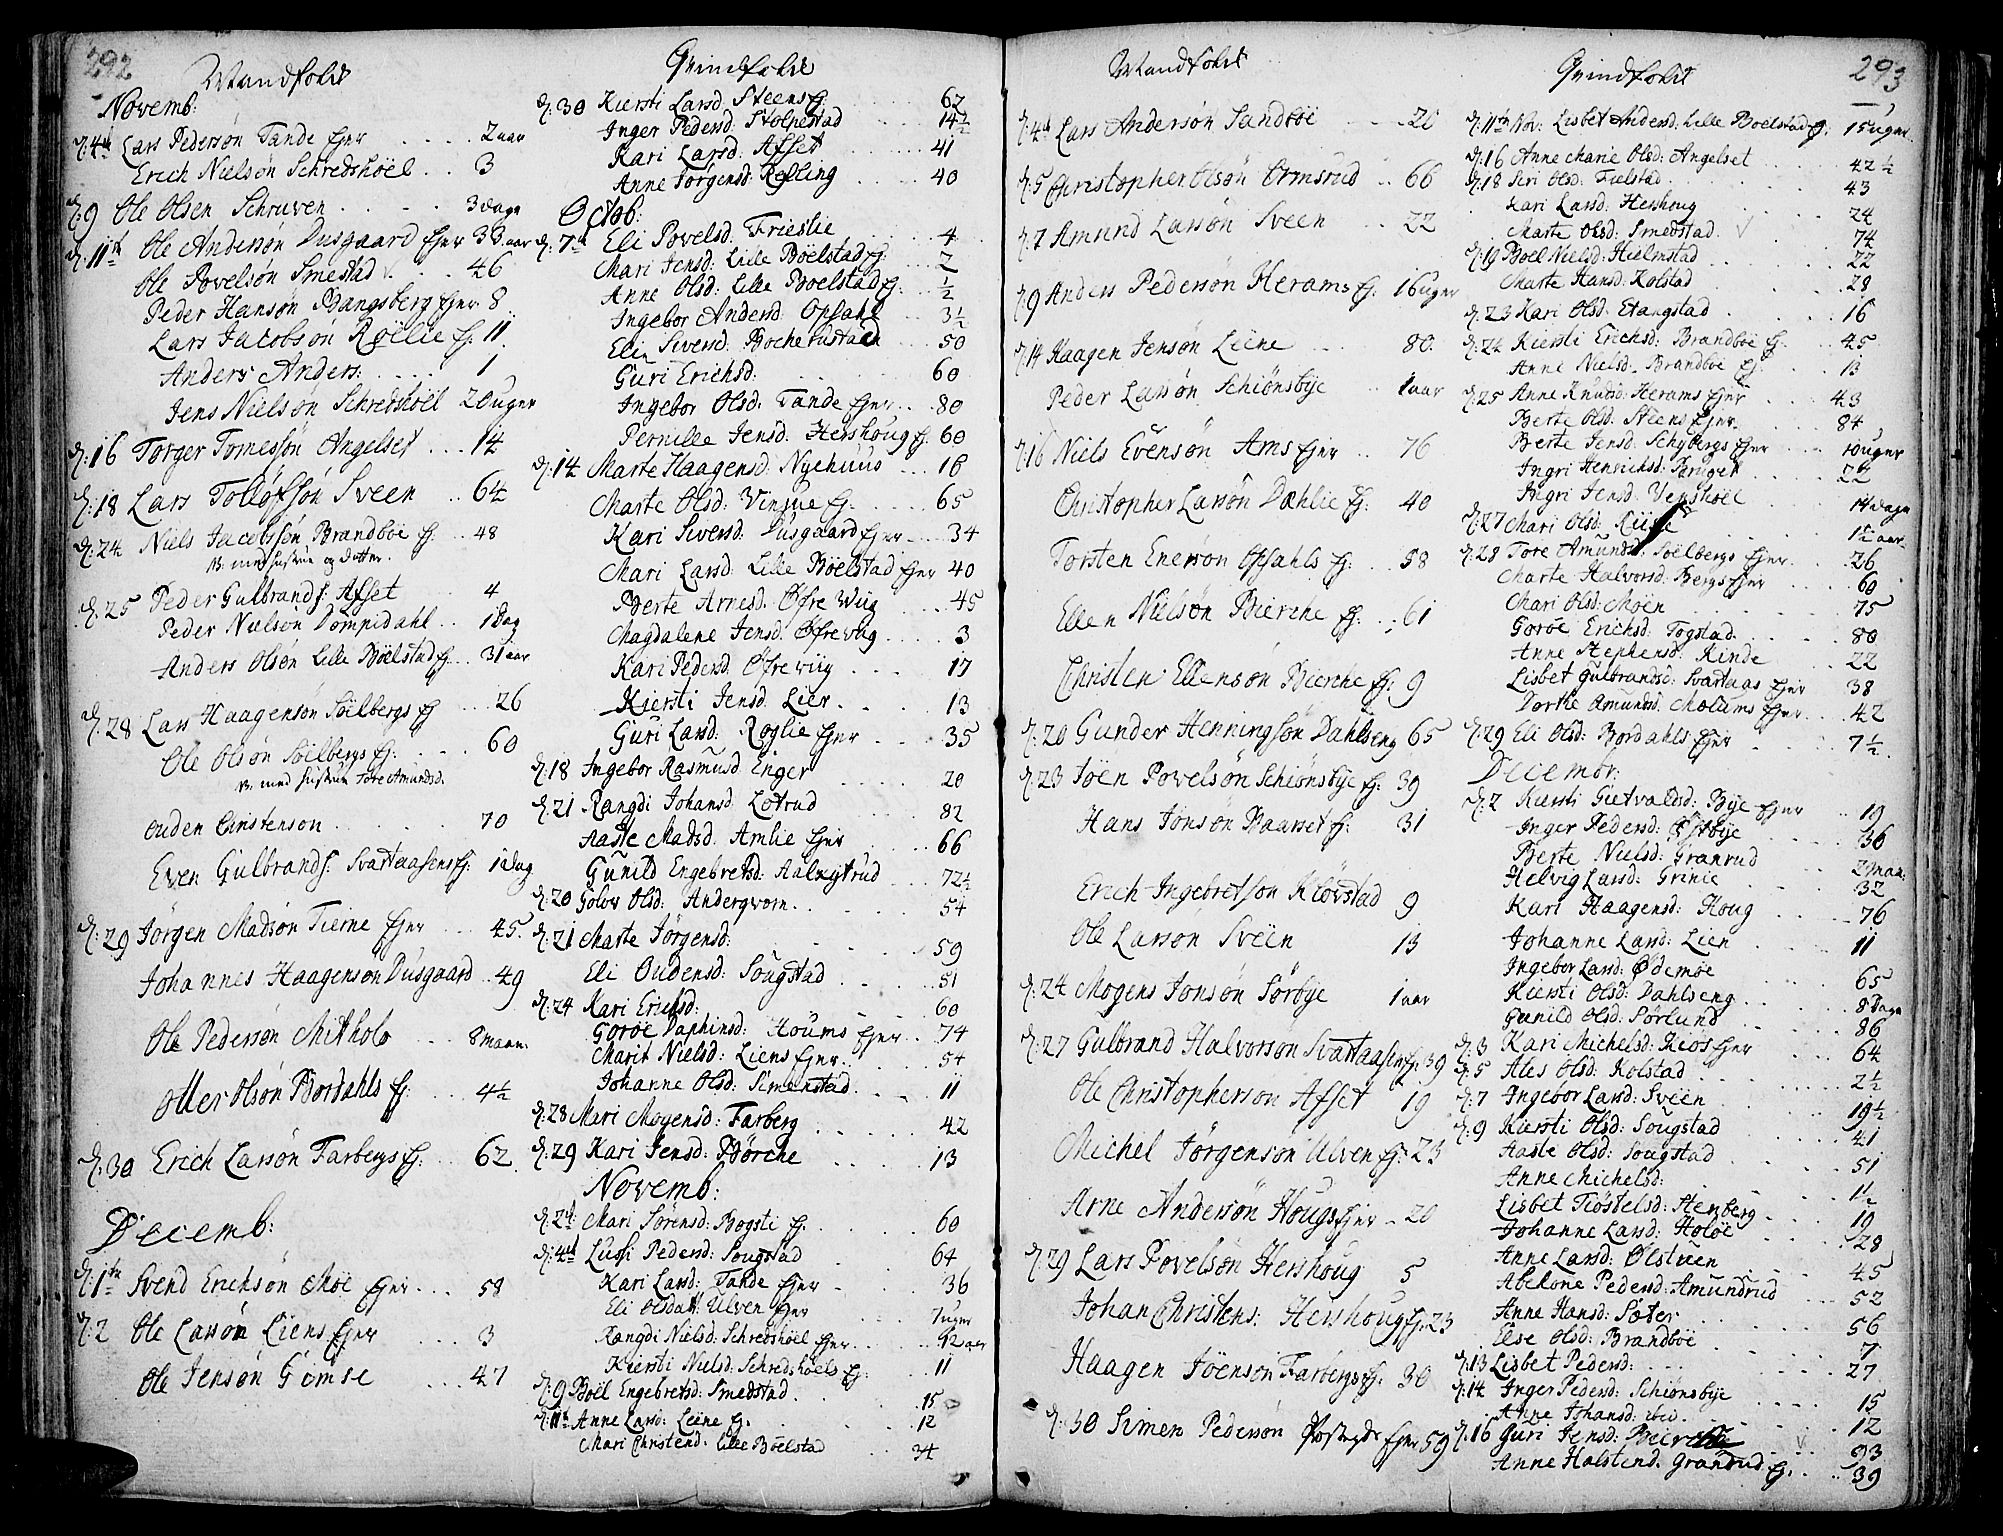 292
Mandfolk
Novemb:
d: 4de Lars Pedersøn Tande Ejer 2 aar
Erich Nielsøn Schredshöel 3
d: 9 Ole Olsen Schruven 3 dage
d: 11te Ole Andersøn Dusgaard Ejer 33 aar
Ole Povelsøn Smestad 46
Peder Hansøn Bangsberg Ejer 8
Lars Jacobsøn Røelie Ej: 11
Anders Anders: 1
Jens Nielsøn Schredshöel 20 uger
d: 16 Torger Tomessøn Angelset 14
d: 18 Lars Tolløfsøn Sveen 64
d: 24 Niels Jacobsøn Brandböe Ej: 48
NB. med hustrue og dotter.
d: 25 Peder Gulbrands: Afset 4
Peder Nielsøn Dompidahl 1 Dag
Anders Olsøn Lille Böelstad Ej. 31 aar
d: 28 Lars Haagensøn Söilbergs Ej 26
Ole Olsøn Söilbergs Ej: 60
NB. med hustrue Tore Amundsd.
Ouden Christensøn 70
Even Gulbrands: Svartaasens Ej: 1 Dag
d: 29 Jörgen Madsøn Tierne Ejer 45
Johannes Haagensøn Dusgaard 49
Ole Pedersøn Mitholo 8 maan:
Otter Olsøn Bordahls Ej: 4½
d: 30 Erich Larsøn Farbergs Ej: 62
Decemb:
d: 1te Svend Erichsøn Möe Ejer 58
d: 2 Ole Larsøn Liens Ejer 3
Ole Jensøn Gimse 47
Qvindfolk
d: 30 Kiersti Larsd. Steens Ej. 62
Inger Pedersd. Stolpestad 14½
Kari Larsd. Afset 41
Anne Jörgensd. Rølling 40
Octob:
d: 7de Eli Povelsd. Frieslie 4
Mari Jensd: Lille Böelstad Ej: 2
Anne Olsd: Lille Böelstad Ej: ½
Ingebor Andersd. Opsahl 3½
Eli Siversd: 50
Guri Erichsd: 60
Ingebor Olsd: Tande Ejer 80
Pernille Jensd. Hershoug Ej. 60
d: 14 Marte Haagensd. Nyehuus 16
Marte Olsd: Vinjue Ej. 65
Kari Siversd. Dusgaard Ejer 34
Mari Larsd. Lille Böelstad Ejer 40
Berte Arnesd. Öfre Wiig 45
Magdalene Jensd. Öfrewiig 3
Kari Pedersd. Öfrewiig 17
Kiersti Jensd. Lier 13
Guri Larsd. Röglie Ejer 35
d: 18 Ingebor Rasmusd. Enger 20
d: 21 Rangdi Johansd. Lotrud 82
Aaste Madsd. Amlie Ejer 66
Gunild Engebretsd: 72½
d: 20 Golov Olsd: Andergvorn 54
d: 21 Marte Jörgensd: 59
Eli Oudensd: Sougstad 51
d: 24 Kari Erichsd: 60
Goröe Daphinsd: Houms Ejer 74
Marit Nielsd: Liens Ejer 54
Johanne Olsd: Simenstad 11
d: 28 Mari Mogensd: Farberg 42
d: 29 Kari Jensd: Börche 13
Novemb:
d: 2d Mari Sørensd: Bogsti Ej. 60
d: 4de Lussi Pedersd: Sougstad 64
Kari Larsd: Tande Ejer 36
Eli Olsdatt: Ulven Ejer 7 uger
Rangdi Nielsd: Schredshöel Ejer 12 aar
Kiersti Nielsd: Schredshöels Ej: 11
d: 9 Böel Engebretsd: Smedstad 15
d: 11te Anne Larsd: Leine Ej. 12
Mari Christend: Lille Böelstad 34
Mandfolk
d: 4de Lars Andersøn Sandböe 20
d: 5 Christopher Olsøn Ormsrud 66
d: 7 Amund Larsøn Sveen 22
d: 9 Anders Pedersøn Herams Ej: 16 uger
d: 14 Haagen Jensøn Leine 80
Peder Larsøn Schiönsbye 1 aar
d: 16 Niels Evensøn Ams Ejer 76
Christopher Larsøn Dæhlie Ej: 40
Torsten Enersøn Opsahls Ej: 58
Ellen Nielsøn Bierche Ej: 61
Christen Ellensøn Bierche Ej: 9
d: 20 Gunder Henningsøn Dahlseng 65
d: 23 Jöen Povelsøn Schiönsbye Ej: 39
Hans Jonsøn Baarset Ej: 31
Erich Ingebretsøn Klövstad 9
Ole Larsøn Sveen 13
d: 24 Mogens Jonsøn Sörbye 1 aar
d: 27 Gulbrand Halvorsøn Svartaasens Ej: 39
Ole Christophersøn Afset 19
Michel Jörgensøn Ulven Ej: 23
Arne Andersøn Hougs Ejer 20
d: 29 Lars Povelsøn Hershoug 5
Johan Christens: Hershoug Ej: 23
Haagen Jöensøn Farbergs Ej: 30
d: 30 Simen Pedersøn Ejer 59
293
Qvindfolk
d: 11te Nov: Lisbet Andersd. Lille Boelstad Ej: 15 uger
d: 16 Anne Marie Olsd: Angelset 42½
d: 18 Siri Olsd: Fielstad 43
Kari Larsd: Hershoug 24
Marte Olsd: Smedstad 74
d: 19 Böel Nielsd: Hielmstad 22
Marte Hansd: Kolstad 28
d: 23 Kari Olsd: Etangstad 16
d: 24 Kiersti Erichsd: Brandböe Ej. 45
Anne Nielsd. Brandböe Ej. 13
d: 25 Anne Knudsd: Herams Ejer 43
Berte Olsd: Steens Ejer 84
Berte Jensd. Schybergs Ejer 10 uger
Ingri Henrichsd: 22
Ingri Jensd: 14 dage
d: 27 Mari Olsd: 1½ aar
d: 28 Tore Amundsd: Söilbergs Ejer 26
Marte Halvorsd: Bergs Ejer 60
Mari Olsd: Moen 75
Goröe Erichsd: Togstad 80
Anne Stephensd: Kinde 22
Lisbet Gulbrandsd: Svartaas Ejer 38
Dorthe Amundsd: Molums Ejer 42
d: 29 Eli Olsd: Bordahls Ejer 7½
Decembr:
d: 2 Kiersti Gutvaldsd: Bye Ejer 19
Inger Pedersd: Östbye 36
Berte Nielsd: Granrud 2 maan:
Helvig Larsd: Grinie 32
Kari Haagensd: Houg 76
Johanne Larsd: Lien 11
Ingebor Larsd: Ödemöe 65
Kiersti Olsd: Dahlseng 8 Dage
Gunild Olsd: Sörlund 86
d: 3 Kari Michelsd: Kios Ejer 64
d: 5 Ales Olsd: Kolstad 2½
d: 7 Ingebor Larsd: Sveen 19½
d: 9 Kiersti Olsd: Sougstad 41
Aaste Olsd: Sougstad 51
Anne Michelsd: 1½
Lisbet Tiöstelsd: Stenberg 19
Johanne Larsd: Holöe 28
Anne Larsd: Ölstuen 45
Abelone Pedersd: Amundrud 52
Anne Hansd: Sæter 56
Else Olsd: Brandböe 7
d: 13 Lisbet Pedersd: 27
d: 14 Inger Pedersd: Schiönsbye 15
Anne Johansd: ibid. 12
d: 16 Guri Jensd: 33
Anne Halstend: Granrud Ej. 39